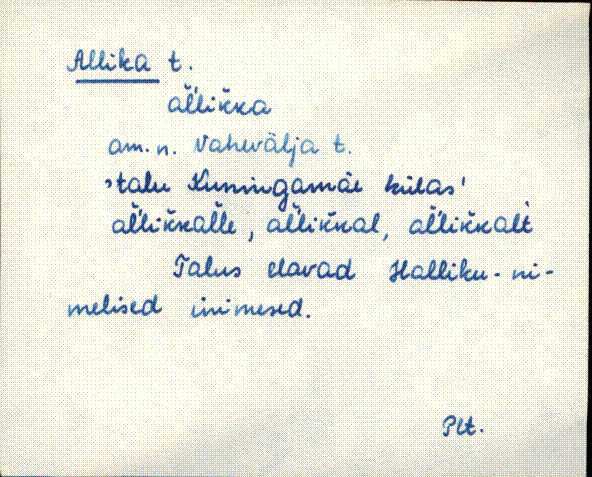 Allika t.
al̆likka
am. n. Vahevälja t.
›talu Kuningamäe külas'
al̆likkal̆le, al̆likkal, al̆likkalt
Talus elavad Halliku-ni-
melised inimesed.
Plt.